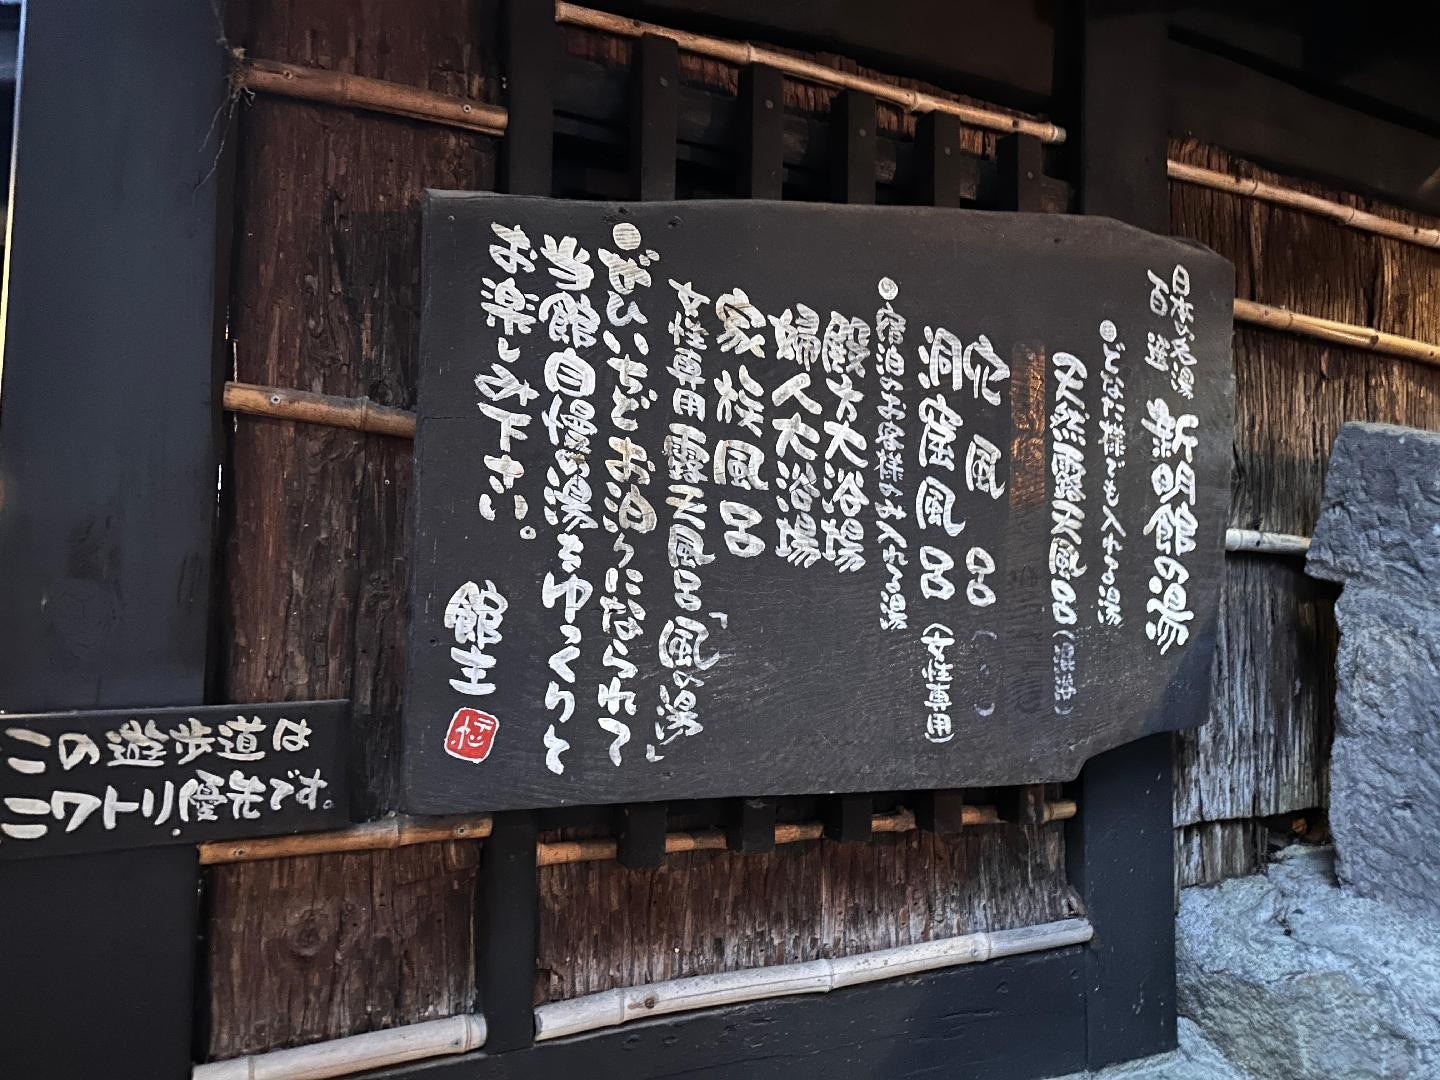 日本の名湯
百選
新明館の湯
●どなた様でも入れる湯
天然露天風呂(混浴)
风呂
洞窟風呂(女性専用)
●宿泊のお客様のみ入れる湯
殿方大浴場
婦人大浴場
家族風呂
女性専用露天風呂「風の湯」
●ぜひいちどお泊りになられて
当館自慢の湯をゆっくりと
お楽しみ下さい。
館主
この遊歩道は
ニワトリ優先です。